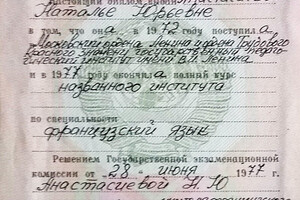 Настоящий диплом выдан
Наталье Юрьевне
в том, что она в 1972 году поступила в
Московский ордена Ленина и ордена Трудового
Красного Знамени государственный педаго-
гический институт имени В.И. Ленина
и в 1977 году окончила полный курс
названного института
по специальности
французский язык
Решением Государственной экзаменационной
комиссии от "28" июня 1977 г.
Анастасиевой Н. Ю